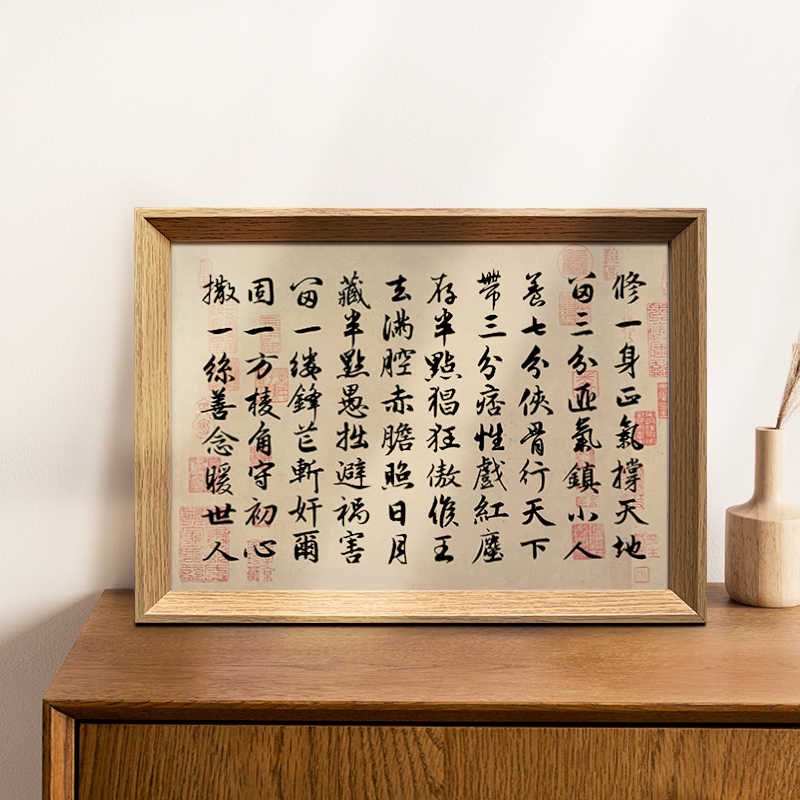 修一身正氣撐天地
留三分匪氣鎮小人
養七分俠骨行天下
帶三分痞性戲紅塵
存半點猖狂傲候王
去滿腔赤膽照日月
藏半點愚拙避禍害
留一缕鋒芒斬奸爾
固一方棱角守初心
撒一絲善念暖世人